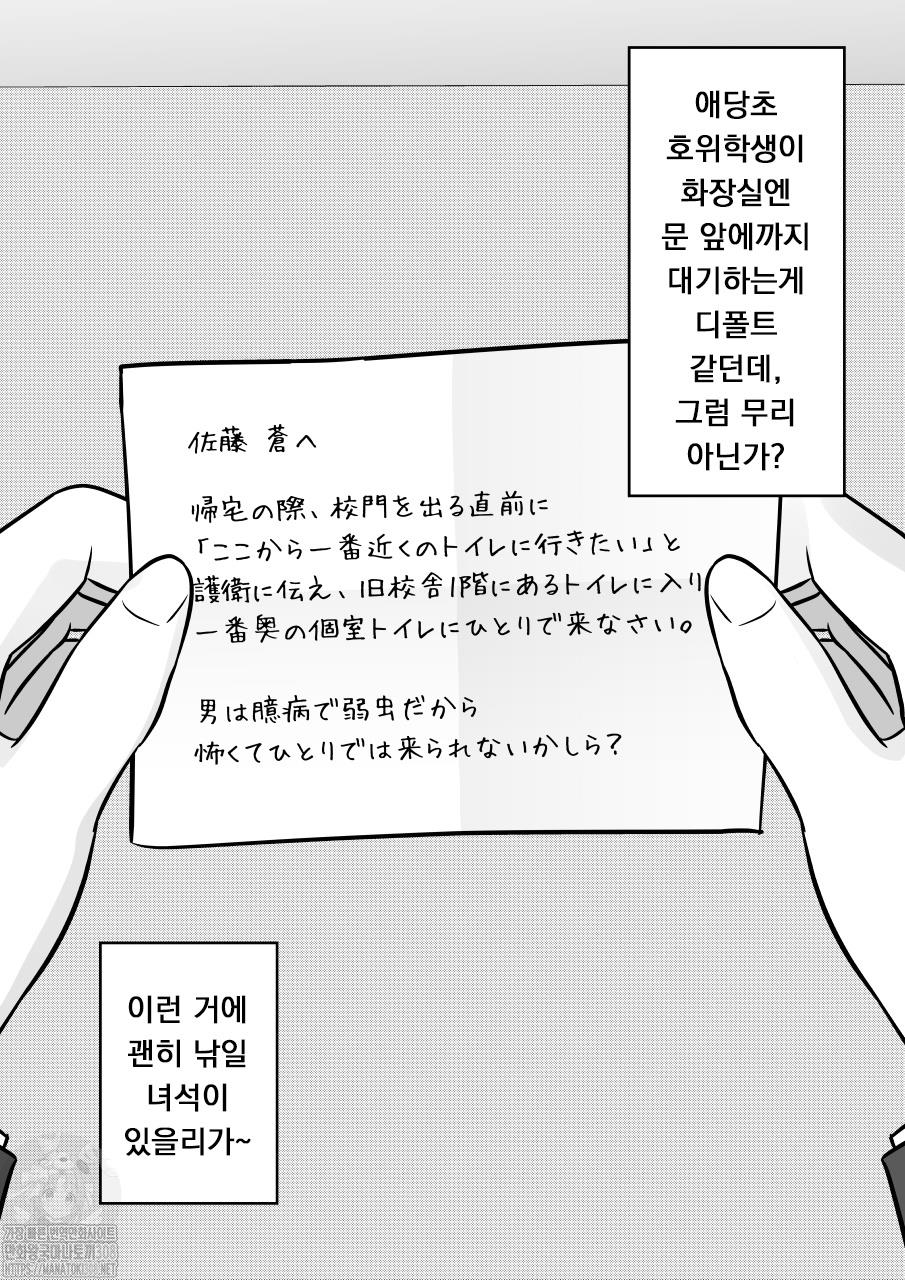 애당초
호위학생이
화장실엔
문 앞에까지
대기하는게
디폴트
같던데,
그럼 무리
아닌가?
佐藤 蒼へ
帰宅の際、校門を出る直前に
「ここから一番近くのトイレに行きたい」と
護衛に伝え、旧校舎1階にあるトイレに入り
一番奥の個室トイレにひとりで来なさい。
男は臆病で弱虫だから
怖くてひとりでは来られないかしら？
이런 거에
괜히 낚일
녀석이
있을리가~
가장 빠른 번역만화사이트
만화왕국마나토끼308
HTTPS://MANATOKI308.NET